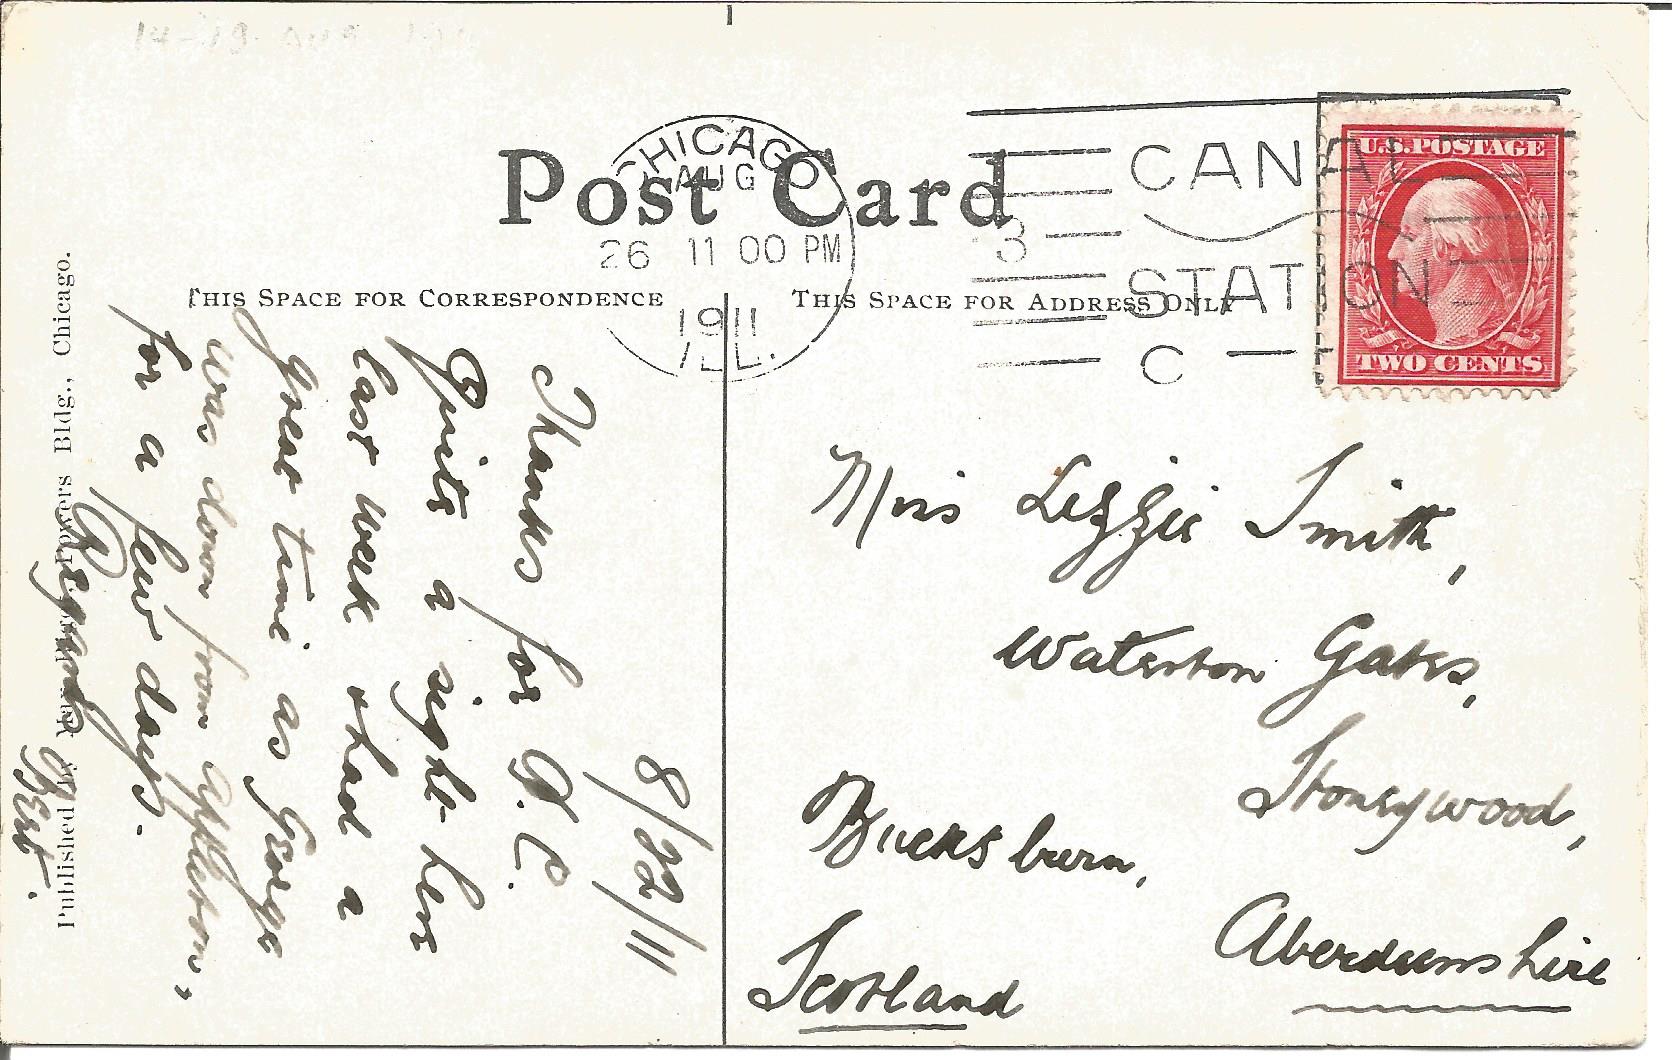 Post Card
THIS SPACE FOR CORRESPONDENCE
THIS SPACE FOR ADDRESS ONLY
CHICAGO
AUG
26 11 00 PM
1911
ILL.
3
CANAL
STATION
C
U.S. POSTAGE
TWO CENTS
8/22/11
Thanks for P.C.
Quite a sight here
last week & had a
great time as George
was down from Appleton,
for a few days.
Regards
Bert.
Miss Lizzie Smith,
Waterton Gates,
Stoneywood,
Bucksburn,
Aberdeenshire
Scotland
Published by Bldg., Chicago.